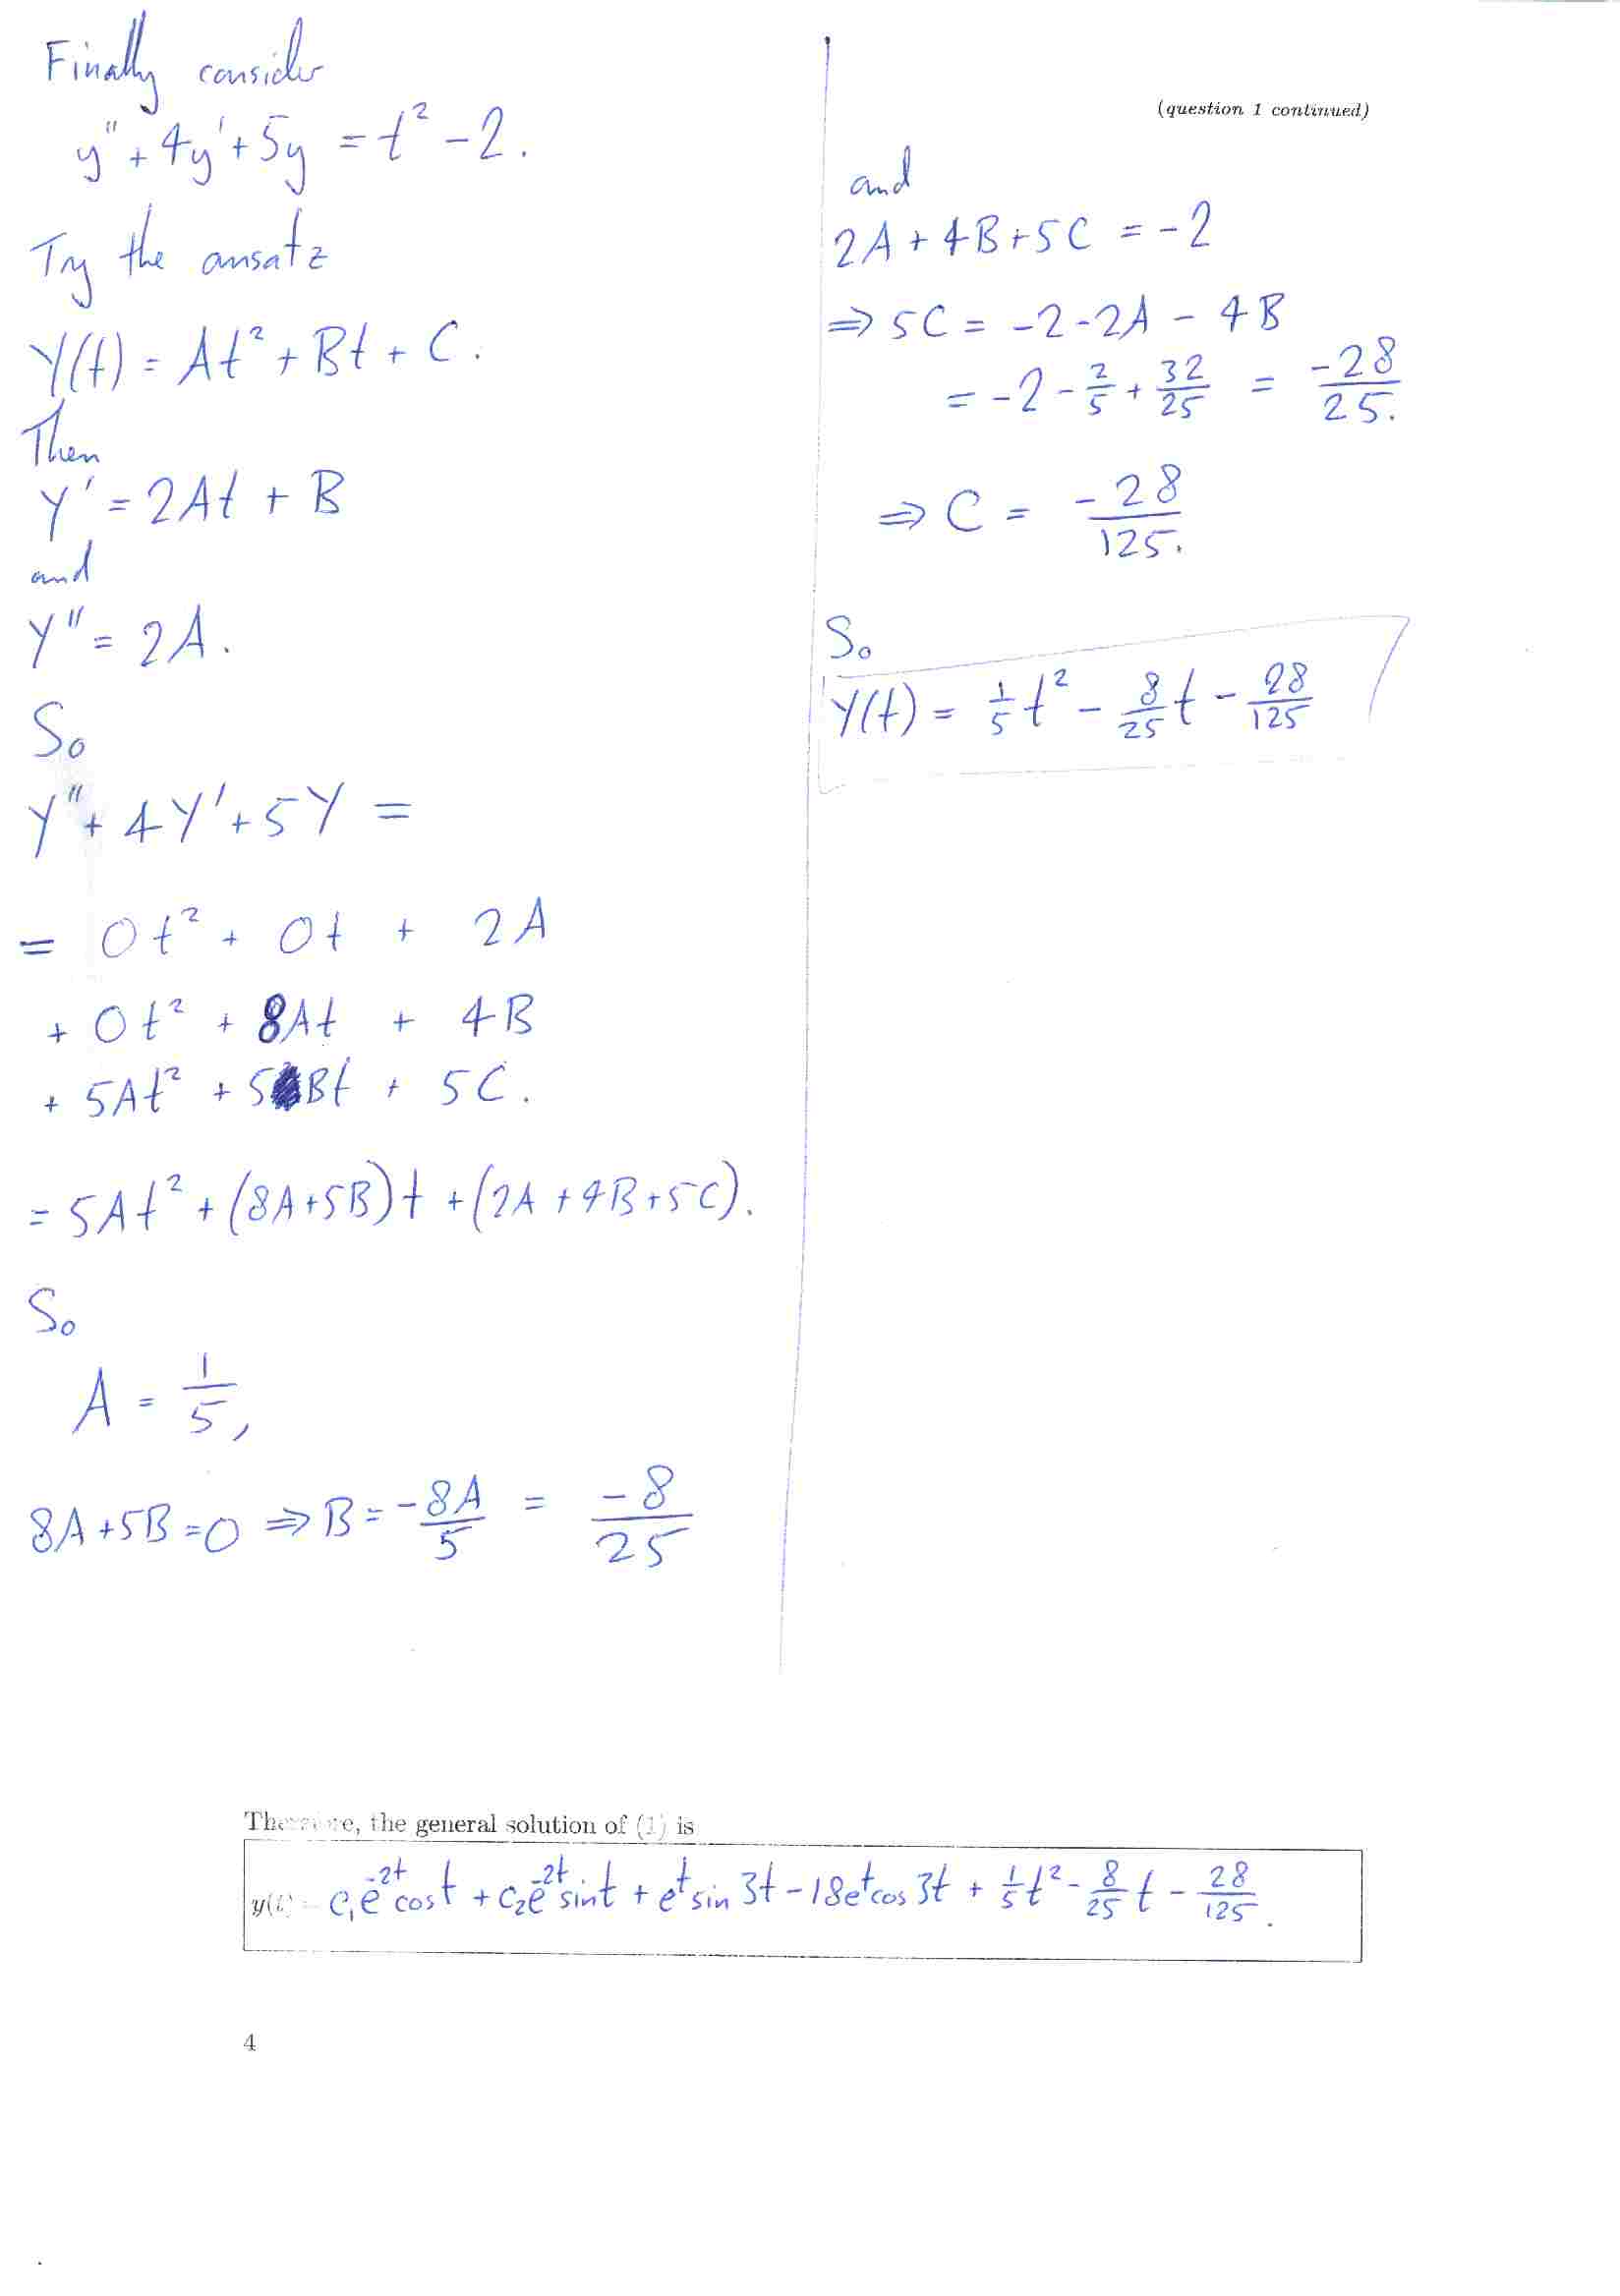 Finally consider
y'' + 4y' + 5y = t² - 2.
Try the ansatz
Y(t) = At² + Bt + C.
Then
Y' = 2At + B
and
Y'' = 2A.
So
Y'' + 4Y' + 5Y =
= 0t² + 0t + 2A
+ 0t² + 8At + 4B
+ 5At² + 5Bt + 5C.
= 5At² + (8A+5B)t + (2A+4B+5C).
So
A = 1/5,
8A+5B=0 ⇒ B = -8A/5 = -8/25
(question 1 continued)
and
2A + 4B + 5C = -2
⇒ 5C = -2 - 2A - 4B
= -2 - 2/5 + 32/25 = -28/25.
⇒ C = -28/125.
So
Y(t) = 1/5 t² - 8/25 t - 28/125
Therefore, the general solution of (1) is
y(t) = c₁e^{-2t} cos t + c₂e^{-2t} sin t + e^t sin 3t - 18e^t cos 3t + 1/5 t² - 8/25 t - 28/125.
4